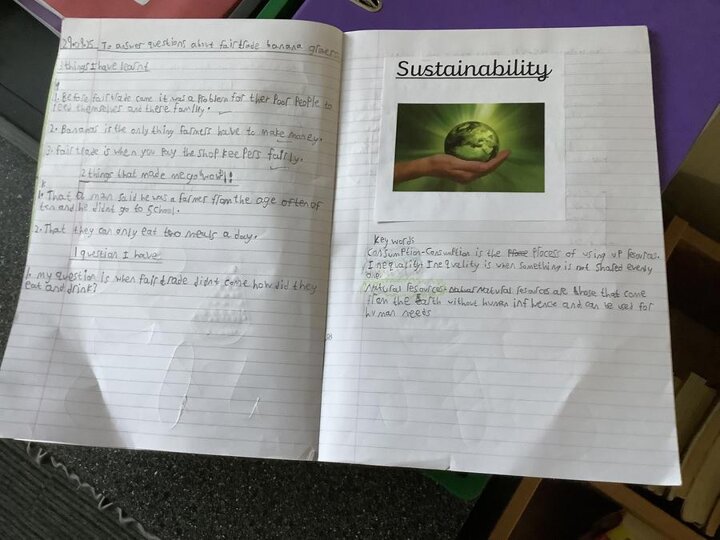 To answer questions about fairtrade banana growers
3 things I have learnt
1. Before fairtrade came it was a problem for ther poor people to
feed themselves and there family.
2. Bananas is the only thing farmers have to make money.
3. fairtrade is when you pay the shop keepers fairly.
2 things that made me go wow!!
1. That a man said he was a farmer from the age often of
ten and he didnt go to school.
2. That they can only eat two meals a day.
1 question I have
1. my question is when fairtrade didnt come how did they
eat and drink?
Sustainability
Key words
Consumption-Consumption is the Process of using up resources.
Inequality-Inequality is when something is not shared evenly
Natural resources-natural Natural resources are those that come
from the Earth without human influence and can be used for
human needs